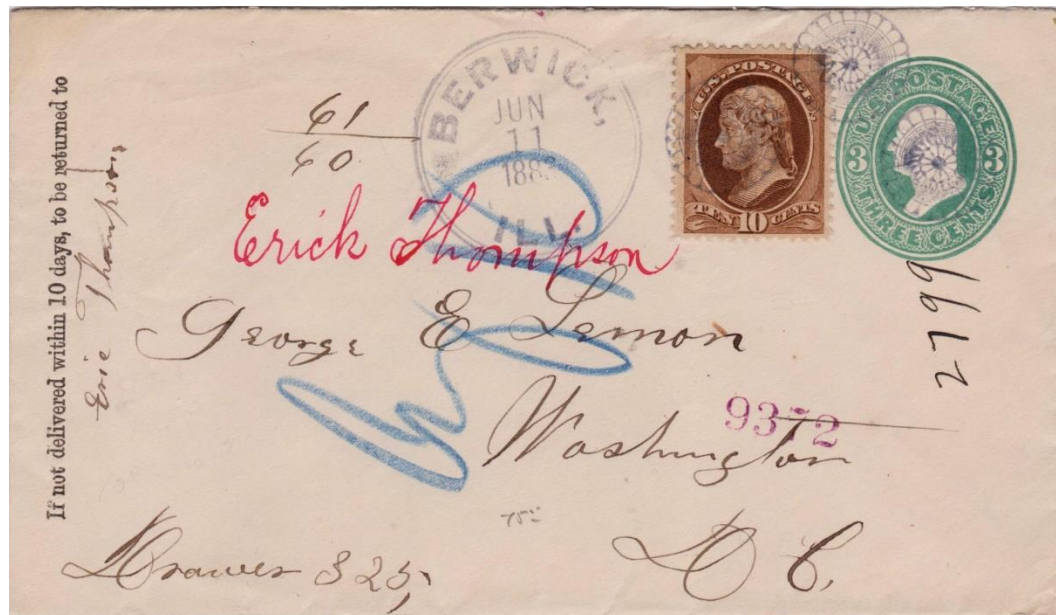 If not delivered within 10 days, to be returned to
Eric Thompson
61
60
BERWICK,
JUN
11
ILL.
U.S. POSTAGE
TEN 10 CENTS
U.S. POSTAGE
3 3
THREE CENTS
Erick Thompson
George E Lemon
Washington
D C.
Drawer 325,
9372
2799